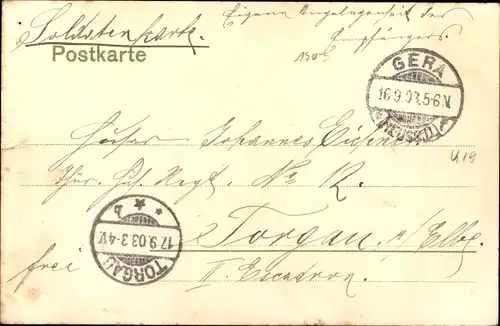 Soldatenkarte.
Eigene Angelegenheit des
Empfängers.
Postkarte
GERA
16.9.03.5-6N.
(REUSS)
Johannes
Thür. Hus. Regt. No 12.
Torgau a/Elbe
frei
II. Escadron.
TORGAU
17.9.03.3-4V.
* * b
U19